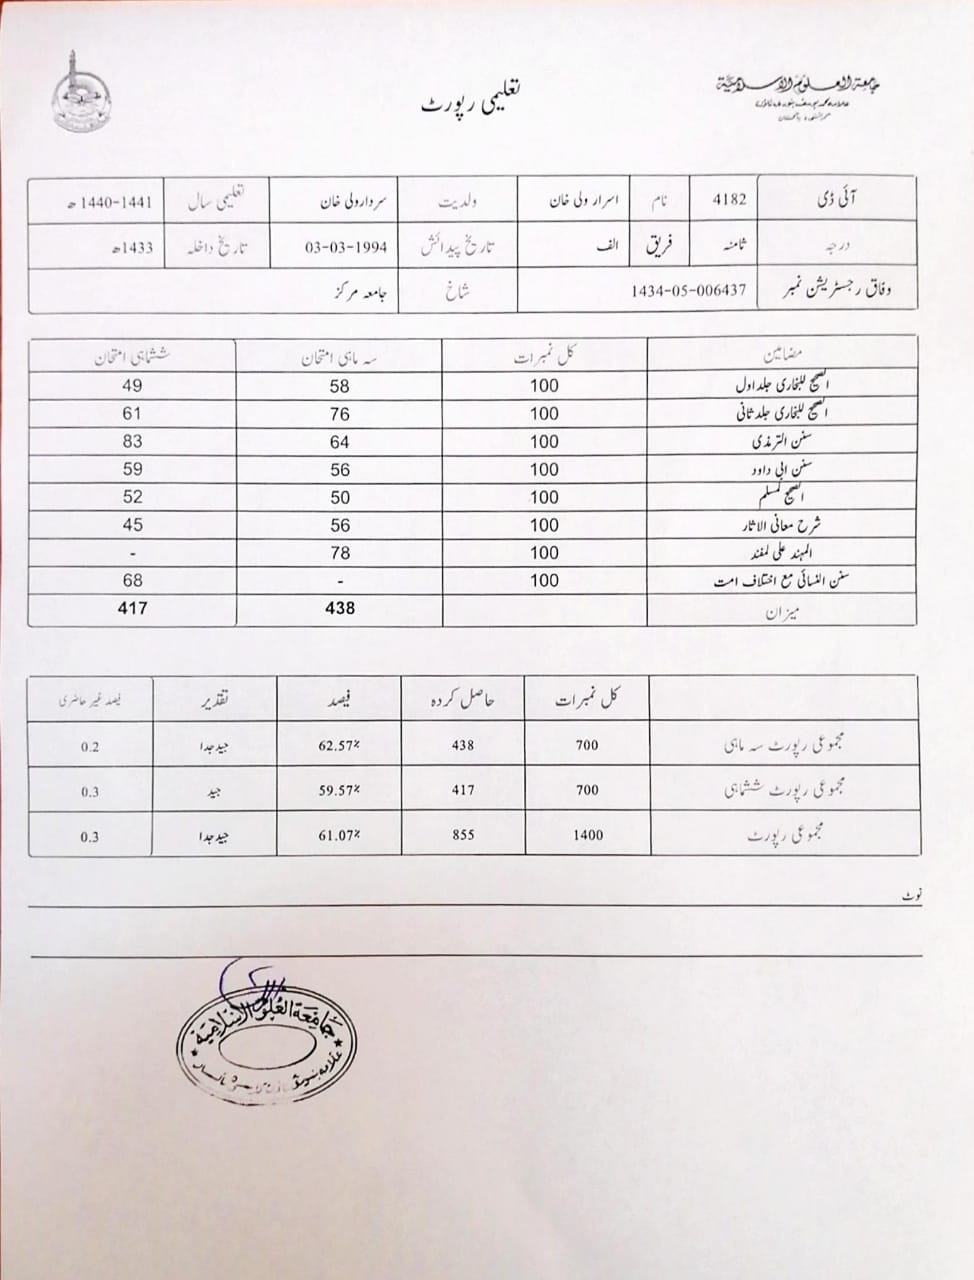 جامعة العلوم الاسلامية
علامہ محمد یوسف بنوری ٹاؤن
کراچی ۵ پاکستان
تعلیمی رپورٹ
آئی ڈی 4182 نام اسرار ولی خان ولدیت سردار ولی خان تعلیمی سال 1440-1441 ھ
درجہ ثامنہ فریق الف تاریخ پیدائش 03-03-1994 تاریخ داخلہ 1433ھ
وفاق رجسٹریشن نمبر 1434-05-006437 شاخ جامعہ مرکز
مضامین کل نمبرات سہ ماہی امتحان ششماہی امتحان
الصحیح للبخاری جلد اول 100 58 49
الصحیح للبخاری جلد ثانی 100 76 61
سنن الترمذی 100 64 83
سنن ابی داود 100 56 59
الصحیح لمسلم 100 50 52
شرح معانی الاثار 100 56 45
المہند علی لمفند 100 78 -
سنن النسائی مع اختلاف امت 100 - 68
میزان 438 417
کل نمبرات حاصل کردہ فیصد تقدیر فیصد غیر حاضری
مجموعی رپورٹ سہ ماہی 700 438 62.57% جید جدا 0.2
مجموعی رپورٹ ششماہی 700 417 59.57% جید 0.3
مجموعی رپورٹ 1400 855 61.07% جید جدا 0.3
نوٹ
جامعة العلوم الاسلامية